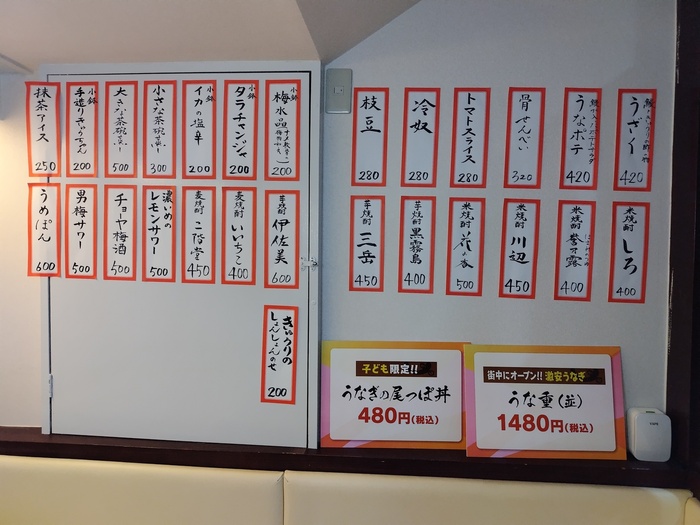 うざく
420
うなポテ
420
骨せんべい
320
トマトスライス
280
冷奴
280
枝豆
280
小鉢
梅水晶
200
小鉢
タラチャンジャ
200
小鉢
イカの塩辛
200
小さな茶碗蒸し
300
大きな茶碗蒸し
500
小鉢
手造りきゅうちゃん
200
抹茶アイス
250
米焼酎
しろ
400
米焼酎
誉の露
400
米焼酎
川辺
450
米焼酎
花の香
500
芋焼酎
黒霧島
400
芋焼酎
三岳
450
芋焼酎
伊佐美
600
麦焼酎
いいちこ
400
麦焼酎
二階堂
450
濃いめの
レモンサワー
500
チョーヤ梅酒
500
男梅サワー
500
うめぽん
600
きゅうりの
しょんしょんのせ
200
子ども限定!!
うなぎの尾っぽ丼
480円(税込)
街中にオープン!! 激安うなぎ
うな重(並)
1480円(税込)